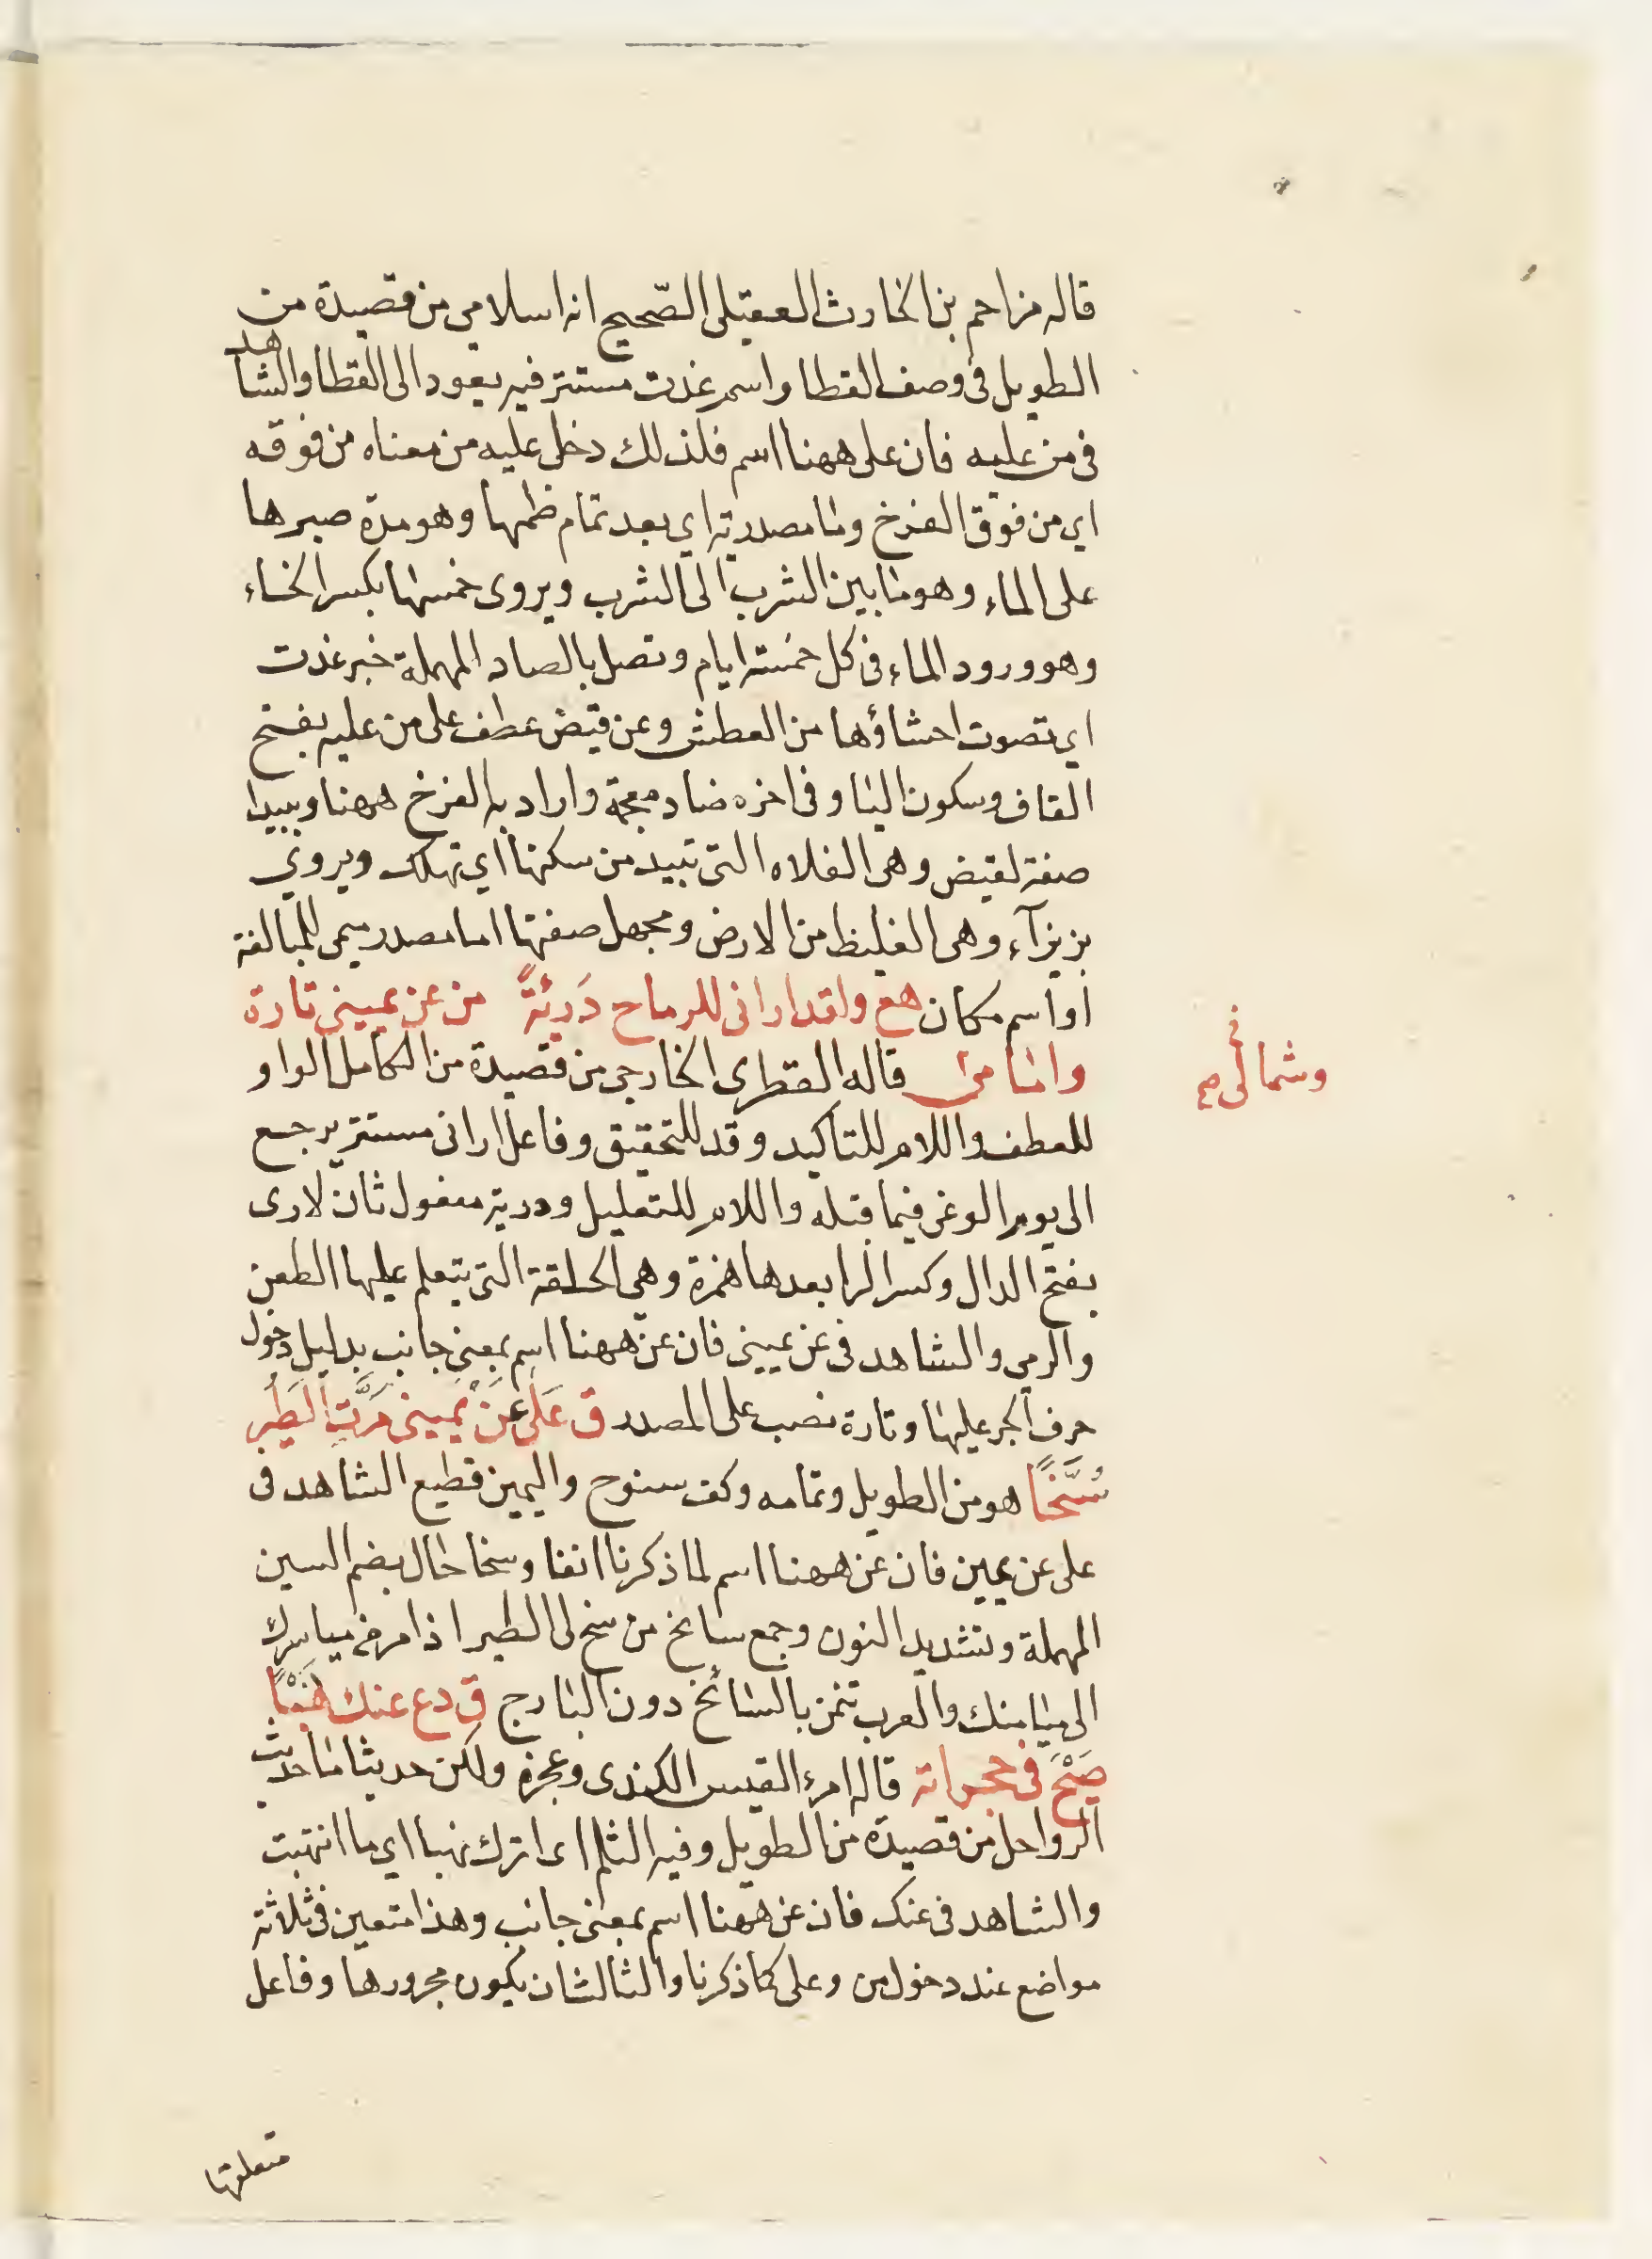 قاله مزاحم بن الحارث العقيلى الصّحيح انه اسلامى من قصيدة من
الطويل فى وصف القطا واسم غدت مستتر فيه يعود الى القطا والشاهد
فى من عليه فان على ههنا اسم فلذلك دخل عليه من معناه من فوقه
اي من فوق الفرخ وما مصدرية اي بعد تمام ظمها وهو مدة صبرها
على الماء وهو ما بين الشرب الى الشرب ويروى خمسها بكسر الخاء
وهو ورود الماء فى كل خمسة ايام وتصل بالصاد المهملة خبر غدت
اي تصوت احشاؤها من العطش وعن قيض عطف على من عليه بفتح
القاف وسكون اليا وفى اخره ضاد معجمة واراد به الفرخ ههنا وببيدا
صفة لقيض وهى الفلاه التى تبيد من سكنها اي تهلك ويروي
بزيزآء وهى الغليظ من الارض ومجهل صفتها اما مصدر ميمى للمبالغة
او اسم مكان هع ولقد ارانى للرماح دَرِئَةً من عن يمينى تارة
وامامى قاله القطرى الخارجى من قصيدة من الكامل الواو
وشمالى صح
للعطف واللام للتاكيد وقد للتحقيق وفاعل ارانى مستتر يرجع
الى يوم الوغى فيما قبله واللام للتعليل ودرية مفعول ثان لارى
بفتح الدال وكسر الرا بعدها همزة وهى الحلقة التى يتعلم عليها الطعن
والرمى والشاهد فى عن يمينى فان عن ههنا اسم بمعنى جانب بدليل دخول
حرف الجر عليها وتارة نصب على المصدر ق عَلَى عَنْ يَمينى مَرَّتِ الطَيْر
سُنَّحًا هو من الطويل وتمامه وكف سنوح واليمين قطيع الشاهد فى
على عن يمين فان عن ههنا اسم لما ذكرنا انفا وسنحا حال بضم السين
المهملة وتشديد النون وجمع سانح من سنح لى الطير اذا مر من مياسرك
الى ميامنك والعرب تتمن بالسانح دون البارح ق دع عنك نَهْبًا
صِيْحَ فى حجراته قاله امرء القيس الكندى وعجزه ولكن حديثا ما حديث
الرواحل من قصيدة من الطويل وفيه الثلم اى اترك نهبا اي ما انتهبت
والشاهد فى عنك فان عن ههنا اسم بمعنى جانب وهذا متعين فى ثلاثة
مواضع عند دخول من وعلى كما ذكرنا والثالث ان يكون مجرورها وفاعل
متعلقها